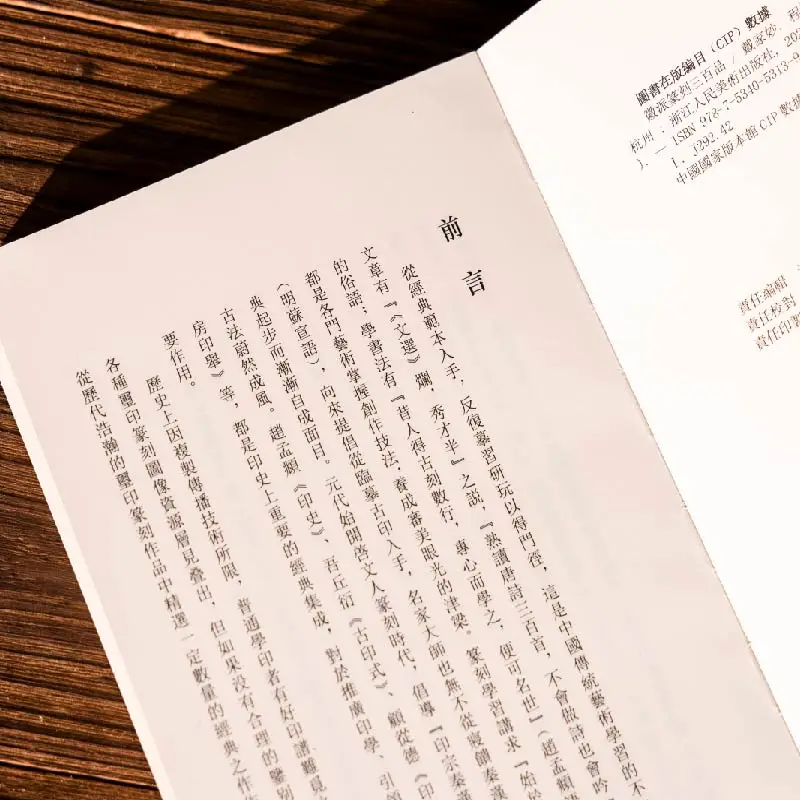 圖書在版編目（CIP）數據
徽派篆刻三百品 / 戴家妙, 程
杭州 : 浙江人民美術出版社, 202
). — ISBN 978-7-5340-5313-9
Ⅰ. J292.42
中國國家版本館CIP數據
責任編輯
責任校對
責任印製
前言
從經典範本入手，反復摹習研玩以得門徑，這是中國傳統藝術學習的不
文章有『《文選》爛，秀才半』之説，『熟讀唐詩三百首，不會做詩也會吟
的俗語；學書法有『昔人得古刻數行，專心而學之，便可名世』（趙孟頫語
都是各門藝術掌握創作技法，養成審美眼光的津梁。篆刻學習講求『始於
（明蘇宣語），向來提倡從臨摹古印入手，名家大師也無不從師秦漢
典起步而漸漸自成面目。元代始開啓文人篆刻時代，倡導『印宗秦漢
古法蔚然成風。趙孟頫《印史》、吾丘衍《古印式》、顧從德《印
房印舉》等，都是印史上重要的經典集成，對於推廣印學、引領
要作用。
歷史上因複製傳播技術所限，普通學印者有好印譜難覓
各種璽印篆刻圖像資源層見叠出，但如果没有合理的鑒別
從歷代浩瀚的璽印篆刻作品中精選一定數量的經典之作作